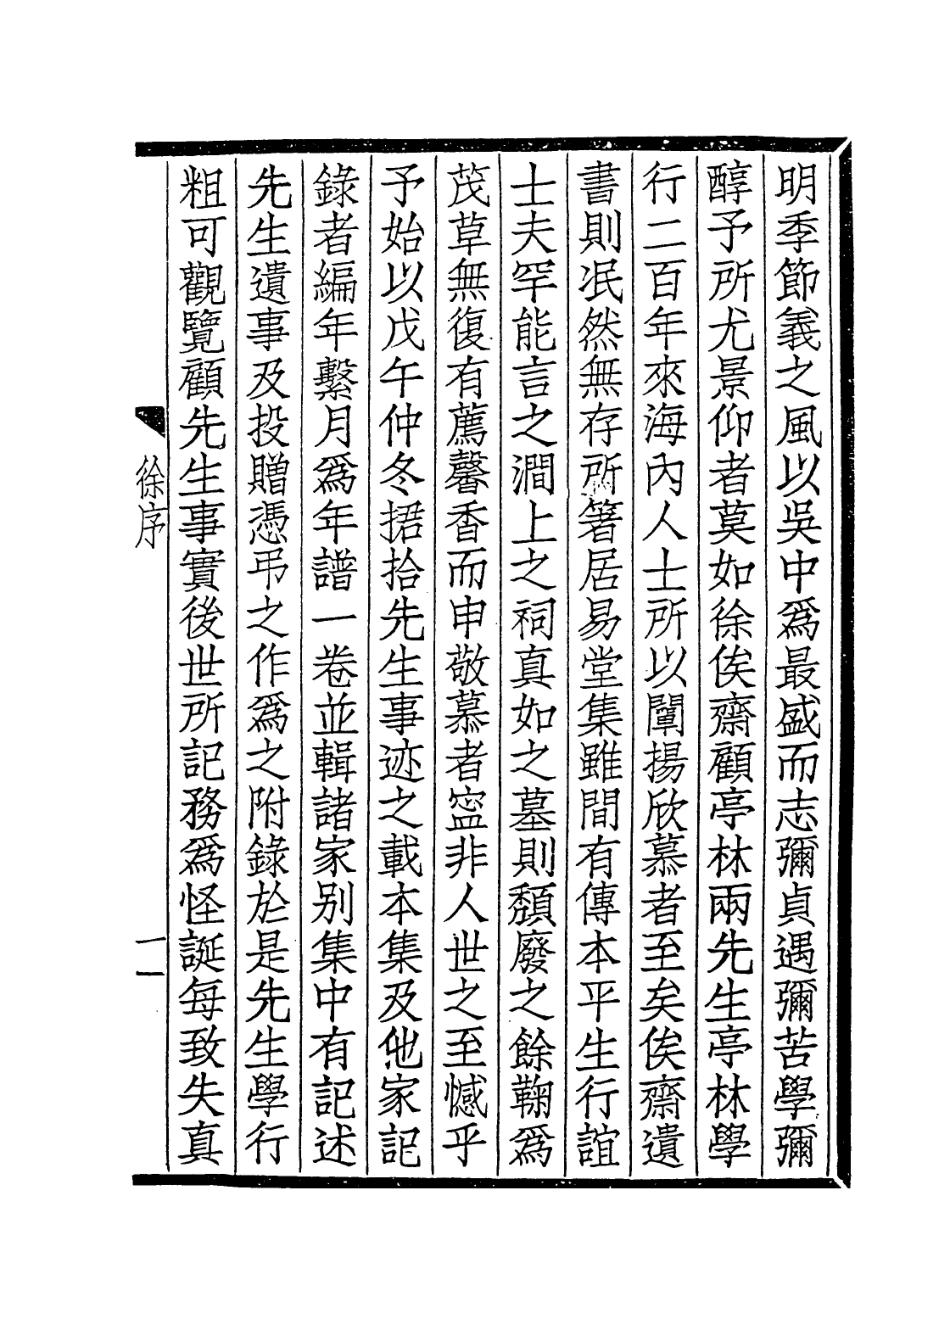 明季節義之風以吳中爲最盛而志彌貞遇彌苦學彌
醇予所尤景仰者莫如徐俟齋顧亭林兩先生亭林學
行二百年來海內人士所以闡揚欣慕者至矣俟齋遺
書則泯然無存所箸居易堂集雖間有傳本平生行誼
士夫罕能言之澗上之祠真如之墓則頽廢之餘鞠爲
茂草無復有薦馨香而申敬慕者寍非人世之至憾乎
予始以戊午仲冬捃拾先生事迹之載本集及他家記
錄者編年繫月爲年譜一卷並輯諸家别集中有記述
先生遺事及投贈憑弔之作爲之附錄於是先生學行
粗可觀覽顧先生事實後世所記務爲怪誕每致失真
徐序
一